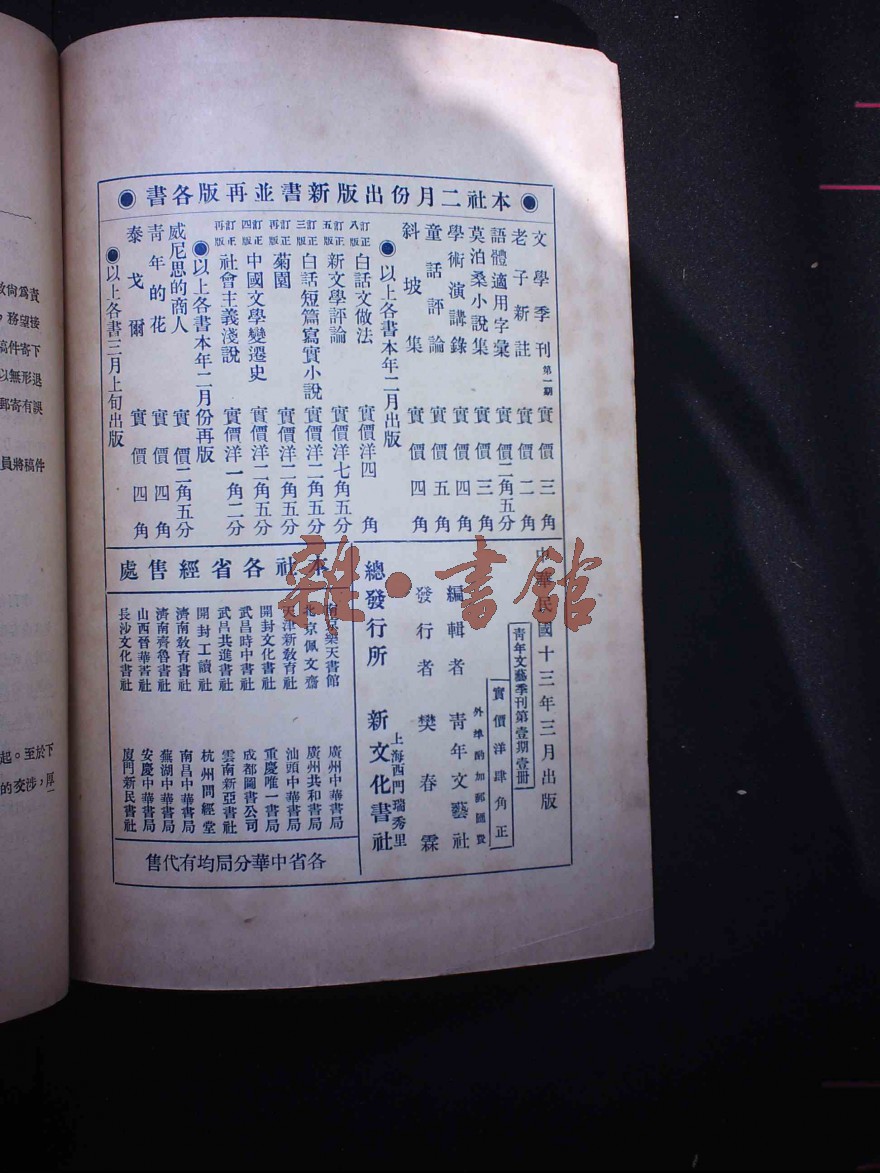 本社二月份出版新書並再版各書
文學季刊 第一期 實價三角
老子新註 實價二角
語體適用字彙 實價二角五分
莫泊桑小說集 實價三角
學術演講錄 實價四角
童話評論 實價五角
斜坡集 實價四角
●以上各書本年二月出版
訂正八版 白話文做法 實價洋四角
訂正五版 新文學評論 實價洋七角五分
訂正三版 白話短篇寫實小說 實價洋二角五分
訂正再版 菊園 實價洋二角五分
訂正四版 中國文學變遷史 實價洋二角五分
訂正再版 社會主義淺說 實價洋一角二分
●以上各書本年二月份再版
威尼思的商人 實價二角五分
靑年的花 實價四角
泰戈爾 實價四角
●以上各書三月上旬出版
中華民國十三年三月出版
靑年文藝季刊第壹期壹冊
實價洋肆角正
外埠酌加郵匯費
編輯者 靑年文藝社
發行者 樊春霖
總發行所 上海西門瑞秀里 新文化書社
本社各省經售處
樂天書館
北京佩文齋
天津新敎育社
開封文化書社
武昌時中書社
武昌共進書社
開封工讀社
濟南敎育書社
濟南齊魯書社
山西晉華書社
長沙文化書社
廣州中華書局
廣州共和書局
汕頭中華書局
重慶唯一書局
成都圖書公司
雲南新亞書社
杭州問經堂
南昌中華書局
蕪湖中華書局
安慶中華書局
廈門新民書社
各省中華分局均有代售
雜·書館
尙爲責
，務望接
稿件寄下
以無形退
郵寄有誤
員將稿件
起。至於下
的交涉，厚